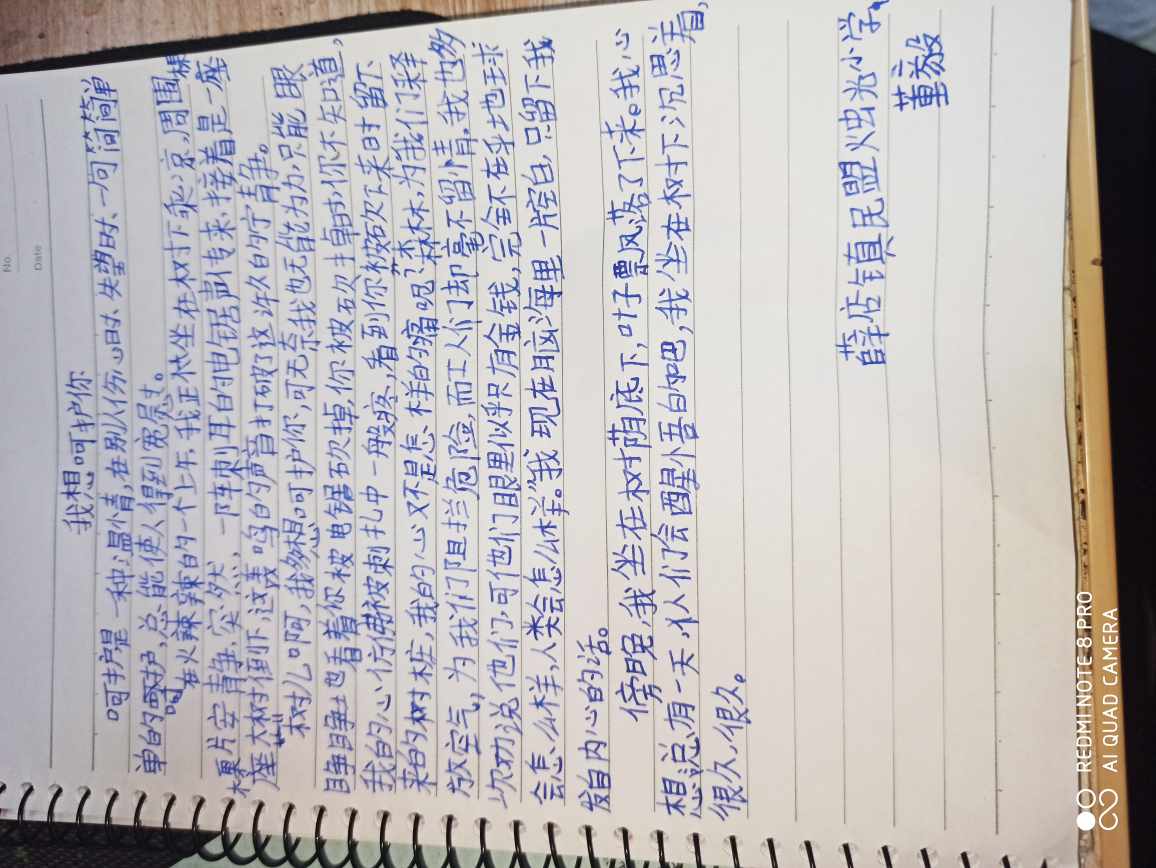 No.
Date
我想呵护你
呵护是一种温情,在别人伤心时、失望时、一句简简
单的呵护,总能使人得到宽慰。
在火辣辣的一个上午,我正坐在树下乘凉,周围一
片安静,突然,一阵刺耳的电锯声传来,接着是一座
座大树倒下,这轰鸣的声音打破了这许久的宁静。
树儿啊,我多想呵护你,可无奈我也无能为力,只能眼
睁睁地看着你被电锯砍掉,你被砍掉时,你不知道,
我的心仿佛被刺扎中一般疼,看到你被砍下来时留下
来的树桩,我的心又不是怎样的痛呢?森林,为我们释
放空气,为我们阻拦危险,而工人们却毫不留情,我也多
次劝说他们,可他们眼里似乎只有金钱,完全不在乎地球
会怎么样,人类会怎么样。"我现在脑海里一片空白,只留下我
发自内心的话。
傍晚,我坐在树荫底下,叶子飘落了下来。我心
想:总有一天,人们会醒悟的吧,我坐在树下沉思着,
很久,很久。
薛店镇民盟烛光小学
董毅
REDMI NOTE 8 PRO
AI QUAD CAMERA